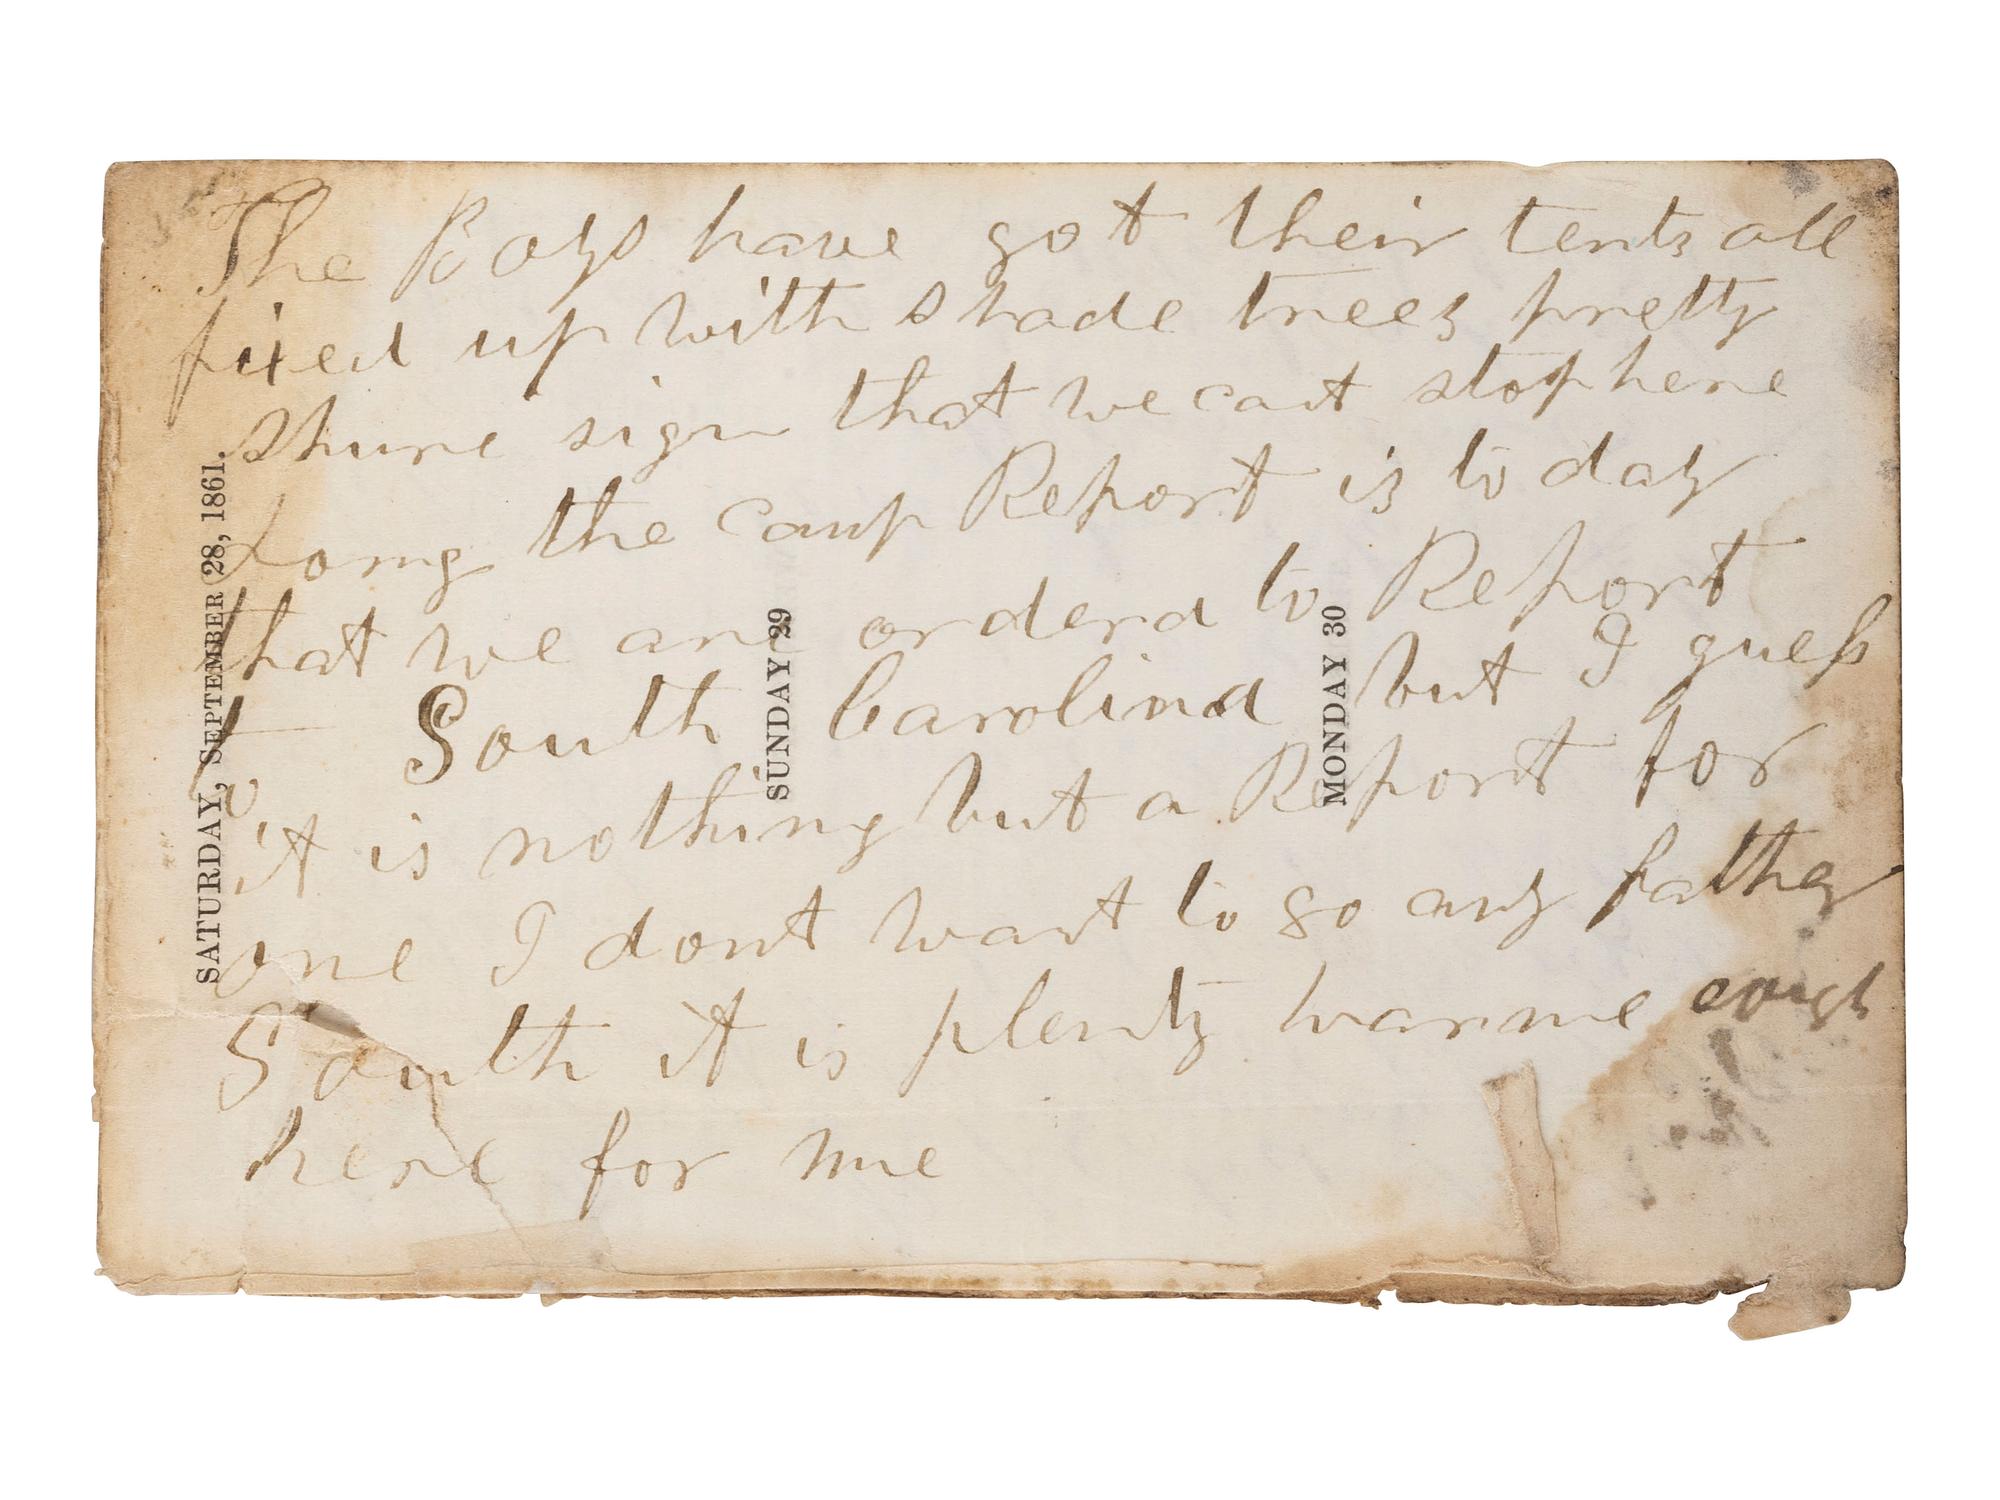 The Boys have got their tents all
fixed up with shade trees pretty
shure sign that we cant stop here
long the camp Report is to day
that we are orderd to Report
to South Carolina but I guess
it is nothing but a Report for
one I dont want to go any father
South it is plenty warme enough
here for me
SATURDAY, SEPTEMBER 28, 1861.
SUNDAY 29
MONDAY 30